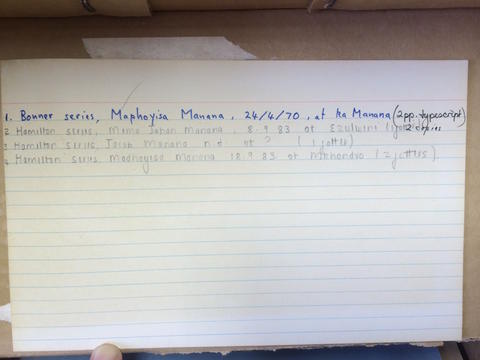 1. Bonner series, Maphoyisa Manana, 24/4/70, at ka Manana (2pp. typescript)
2 copies
2 Hamilton series, Mome Johan Manana, 8.9.83 at Ezulwini (1 jotter)
3 Hamilton series, Jacob Manana n.d. at ? (1 jotter)
4 Hamilton series, Madhoyisa Manana 18.9.83 at (2 jotters).